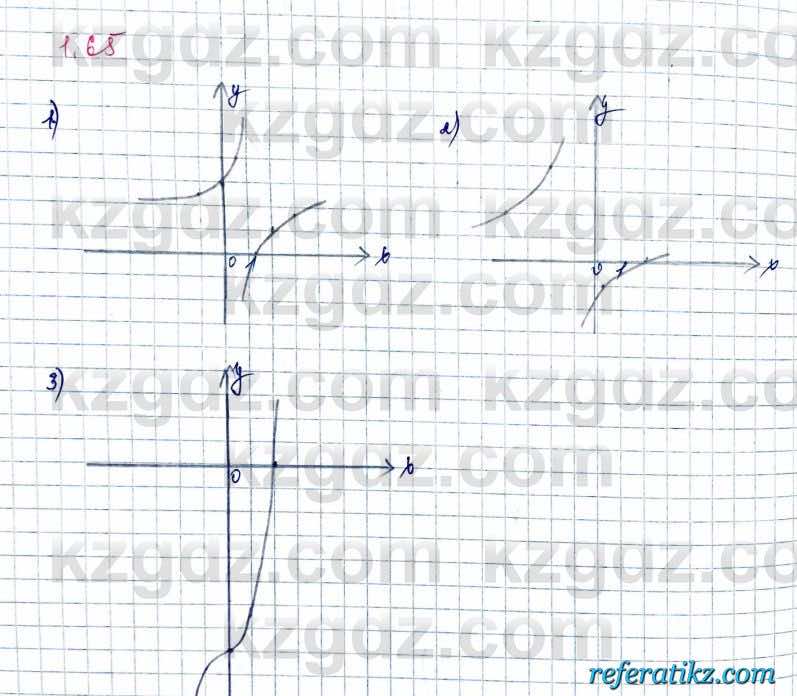 kzgdz.com kzgdz.com
1.65
1) y 2) y
kzgdz.com
kzgdz.com kzgdz.com
0 1 x 0 1 x
kzgdz.com
3) y
kzgdz.com kzgdz.com
0 x
kzgdz.com
kzgdz.com kzgdz.com
kzgdz.com
referatikz.com